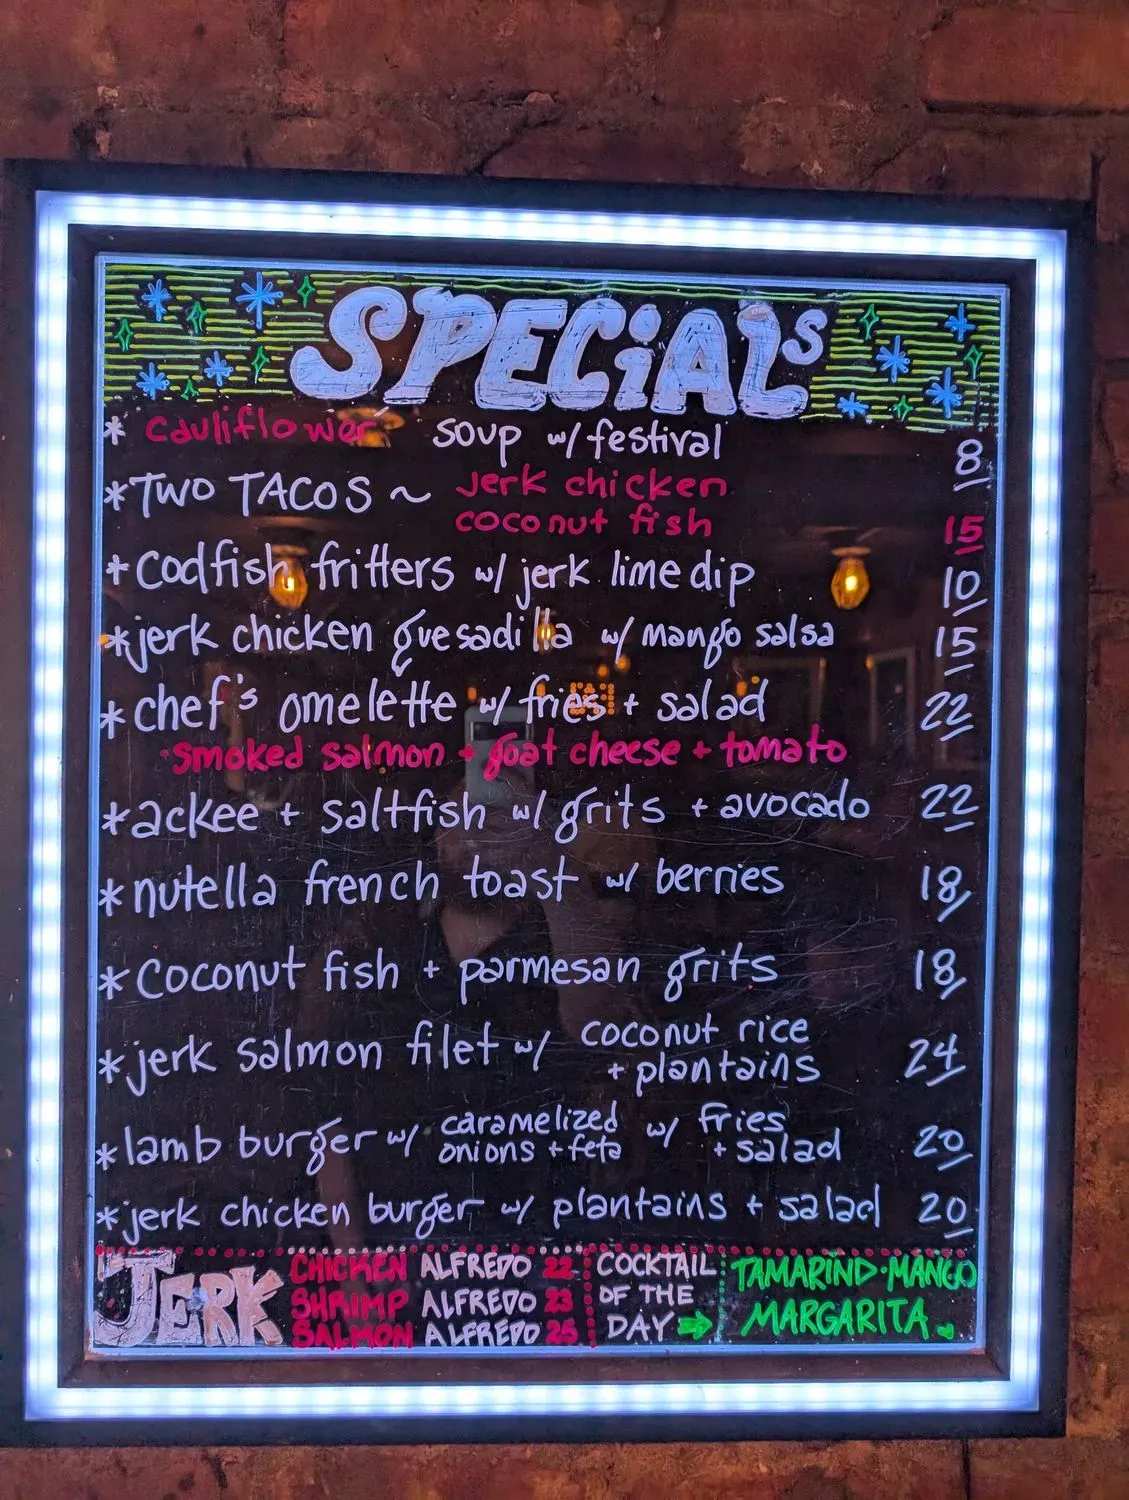 SPECiALS
* cauliflower soup w/ festival 8
* TWO TACOS ~ jerk chicken
coconut fish 15
* codfish fritters w/ jerk lime dip 10
* jerk chicken quesadilla w/ mango salsa 15
* chef's omelette w/ fries + salad 22
smoked salmon + goat cheese + tomato
* ackee + saltfish w/ grits + avocado 22
* nutella french toast w/ berries 18
* coconut fish + parmesan grits 18
* jerk salmon filet w/ coconut rice
+ plantains 24
* lamb burger w/ caramelized onions + feta w/ fries + salad 20
* jerk chicken burger w/ plantains + salad 20
JERK
CHICKEN ALFREDO 22
SHRIMP ALFREDO 23
SALMON ALFREDO 25
COCKTAIL
OF THE
DAY →
TAMARIND·MANGO
MARGARITA